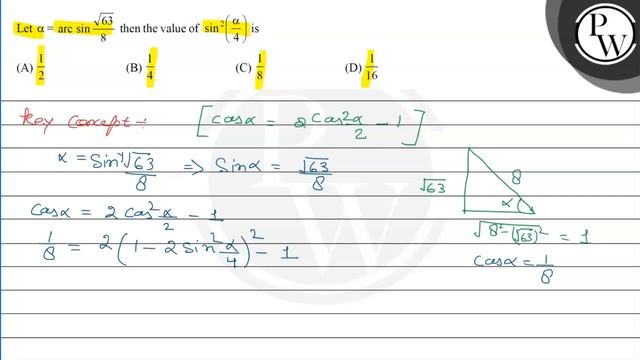 Let α = arc sin √63/8 then the value of sin²(α/4) is
(A) 1/2 (B) 1/4 (C) 1/8 (D) 1/16
PW
Key Concept :- [cosα = 2cos²α/2 - 1]
α = Sin⁻¹√63/8 ⇒ Sinα = √63/8
√63 8 α
cosα = 2cos²α/2 - 1
√8²-(√63)² = 1
1/8 = 2(1 - 2sin²α/4)² - 1
cosα = 1/8